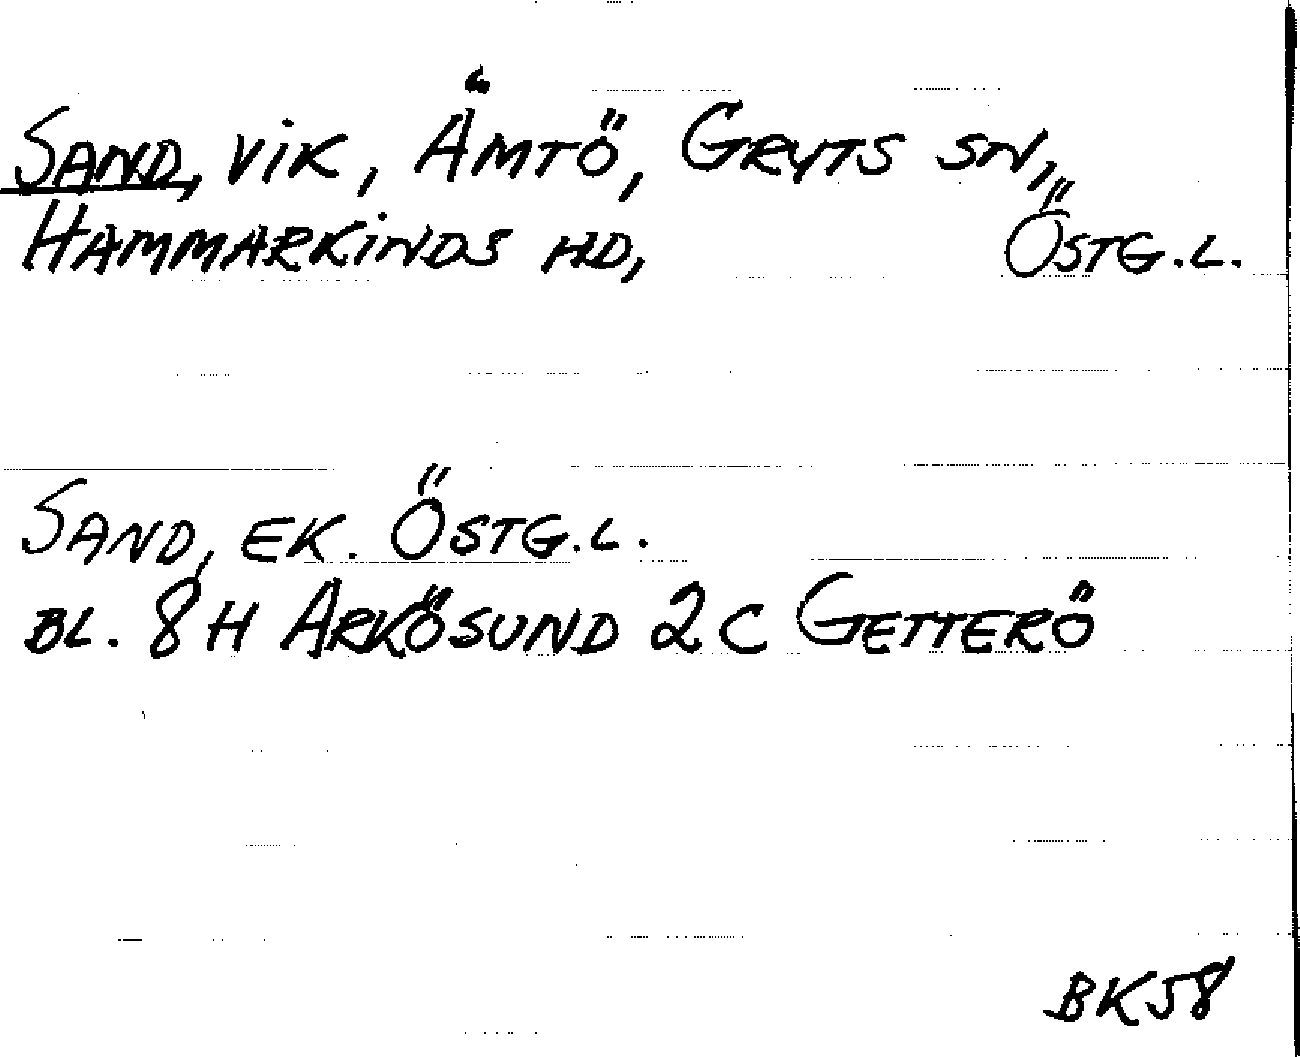 SAND, VIK, ÄMTÖ, GRYTS SN,
HAMMARKINDS HD, ÖSTG.L.
SAND, EK. ÖSTG.L.
BL. 8H ARKÖSUND 2C GETTERÖ
BK58